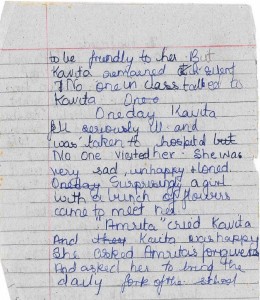 to be friendly to her. But
Kavita remained silent
No one in class talked to
Kavita
Oneday Kavita
fell seriously ill and
was taken to hospital but
No one visited her. She was
very sad, unhappy
Oneday Surprisingly a girl
with a bunch of flowers
came to meet her
"Amrita" cried Kavita
And Kavita was happy
She asked Amritas forgiveness
And asked her to bring the
daily of the school